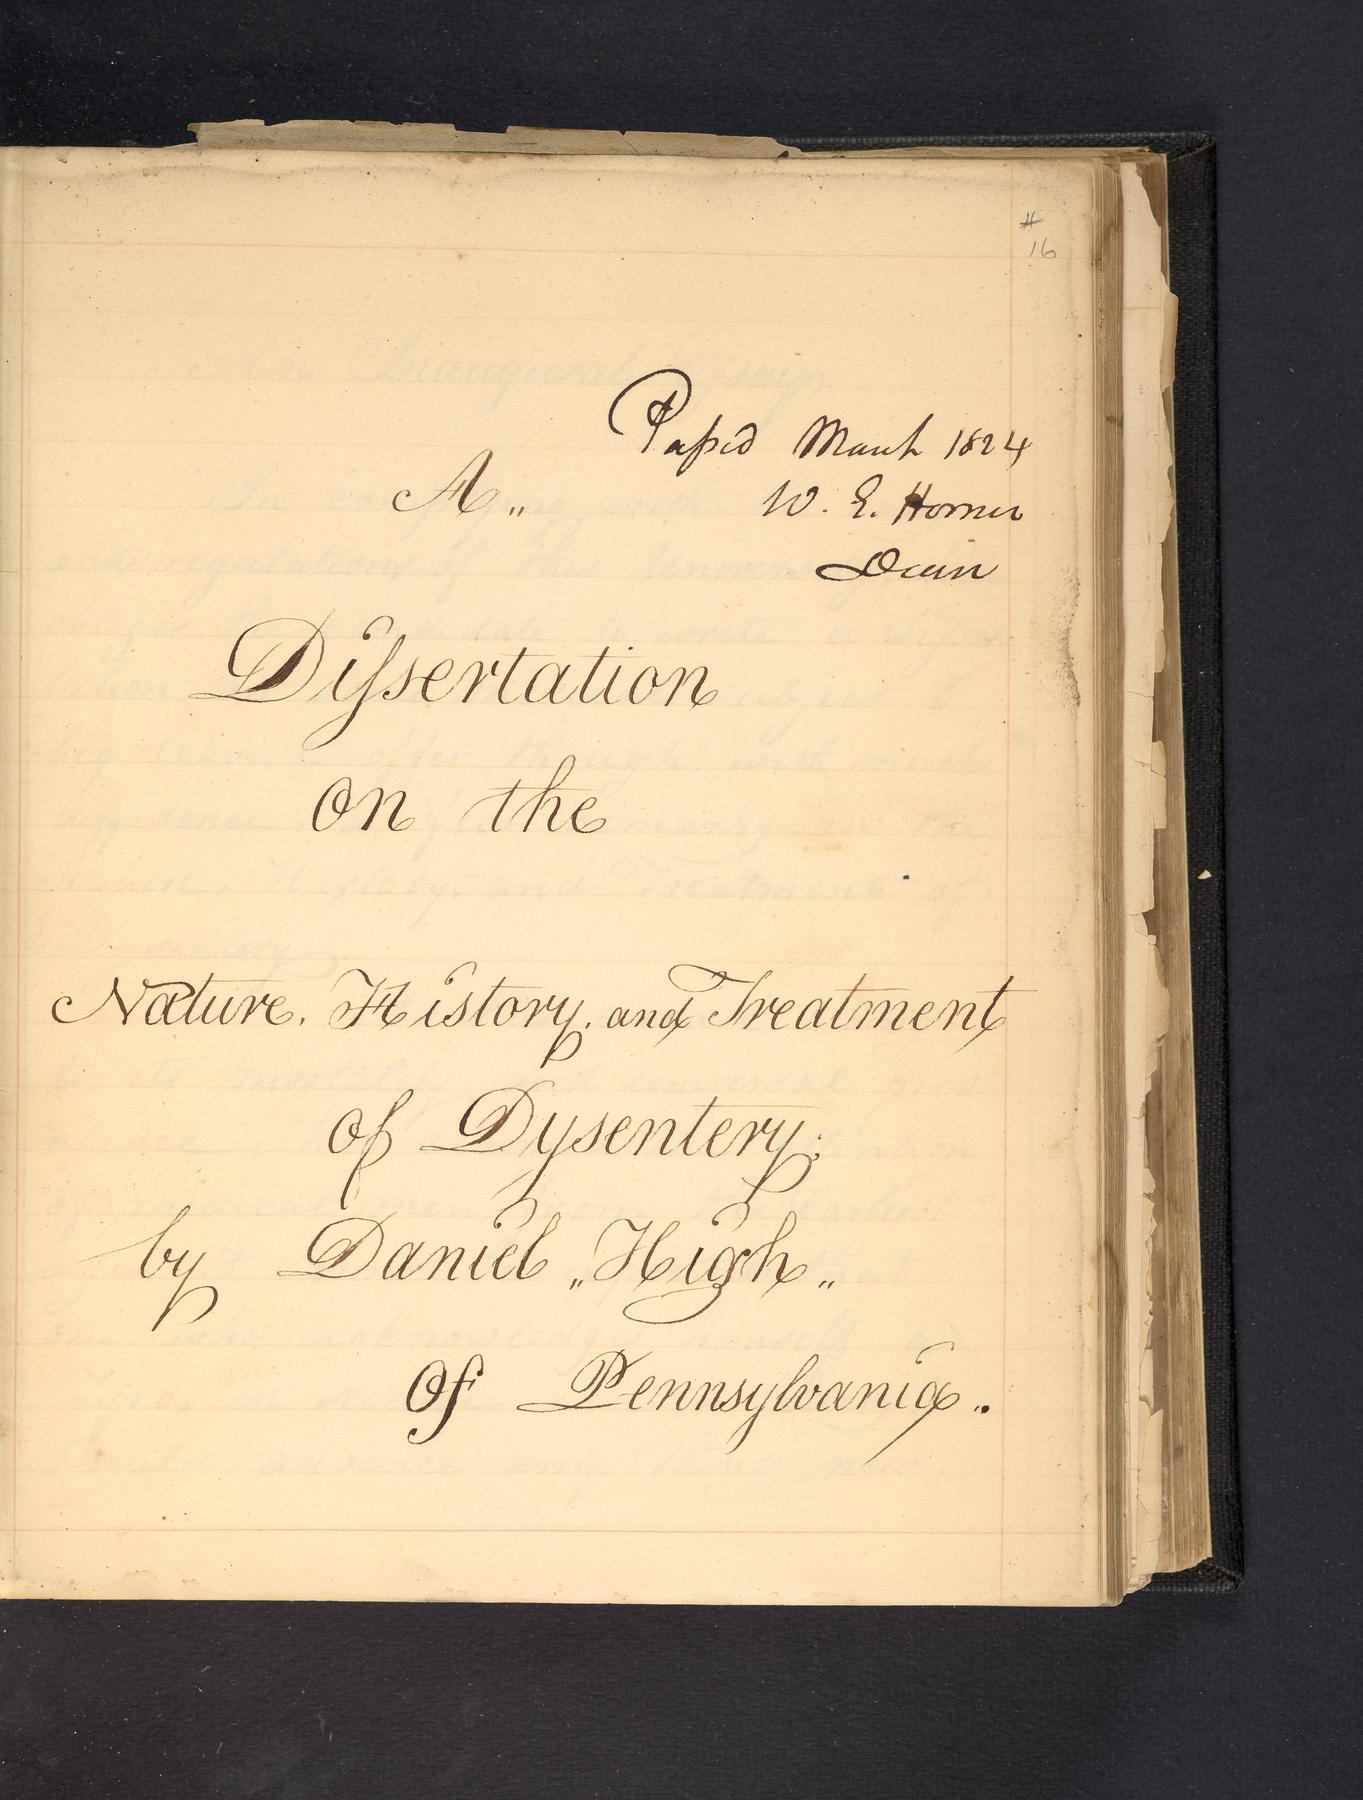 #
16
Paſsed March 1824
A„
W. E. Horner
Dean
Diſsertation
on the
Nature, History, and Treatment
of Dysentery;
by Daniel „High„
Of Pennsylvania„